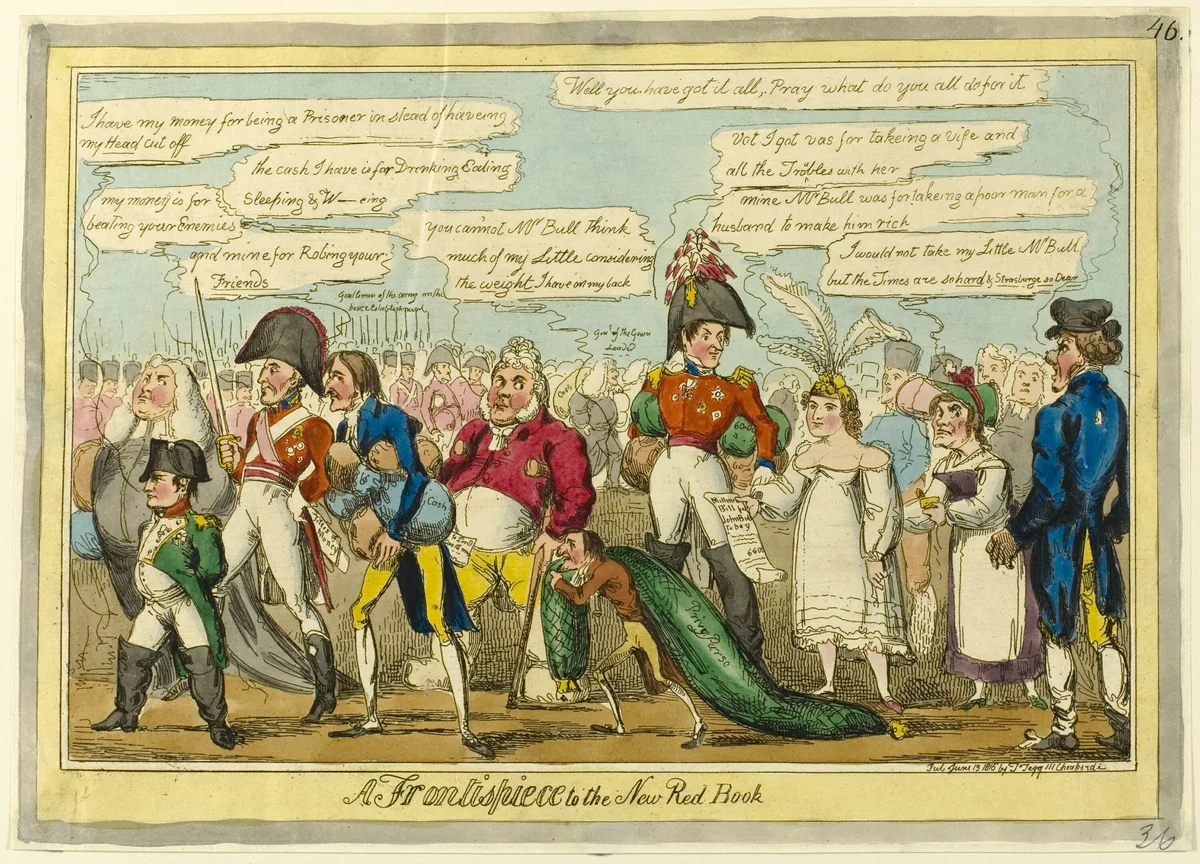 46.
Well you have got it all,. Pray what do you all do for it
I have my money for being a Prisoner in stead of haveing
my Head cut off
the cash I have is for Drinking Eating
Sleeping & W—eing
my money is for
beating your Enemies
and mine for Robing your
Friends
you cannot Mr Bull think
much of my Little considering
the weight I have on my back
Vot I got vas for takeing a Vife and
all the Trobles with her
mine Mr Bull was for takeing a poor man for a
husband to make him rich
I would not take my Little Mr Bull
but the Times are so hard & Strasburge so Dear
Gentlemen of the army on the
peace Establishment
Gent of the Gown
Loaded
Cash
60-00
60
Bill for
John Bull
to pay
Privy Purse
Pub June 13 1816 by T Tegg 111 Cheapside
A Frontispiece to the New Red Book
36